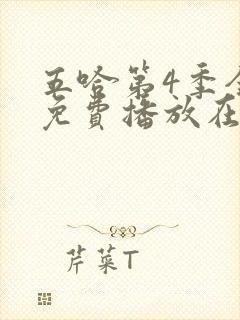 五哈第4季
免費播放在
芹菜T